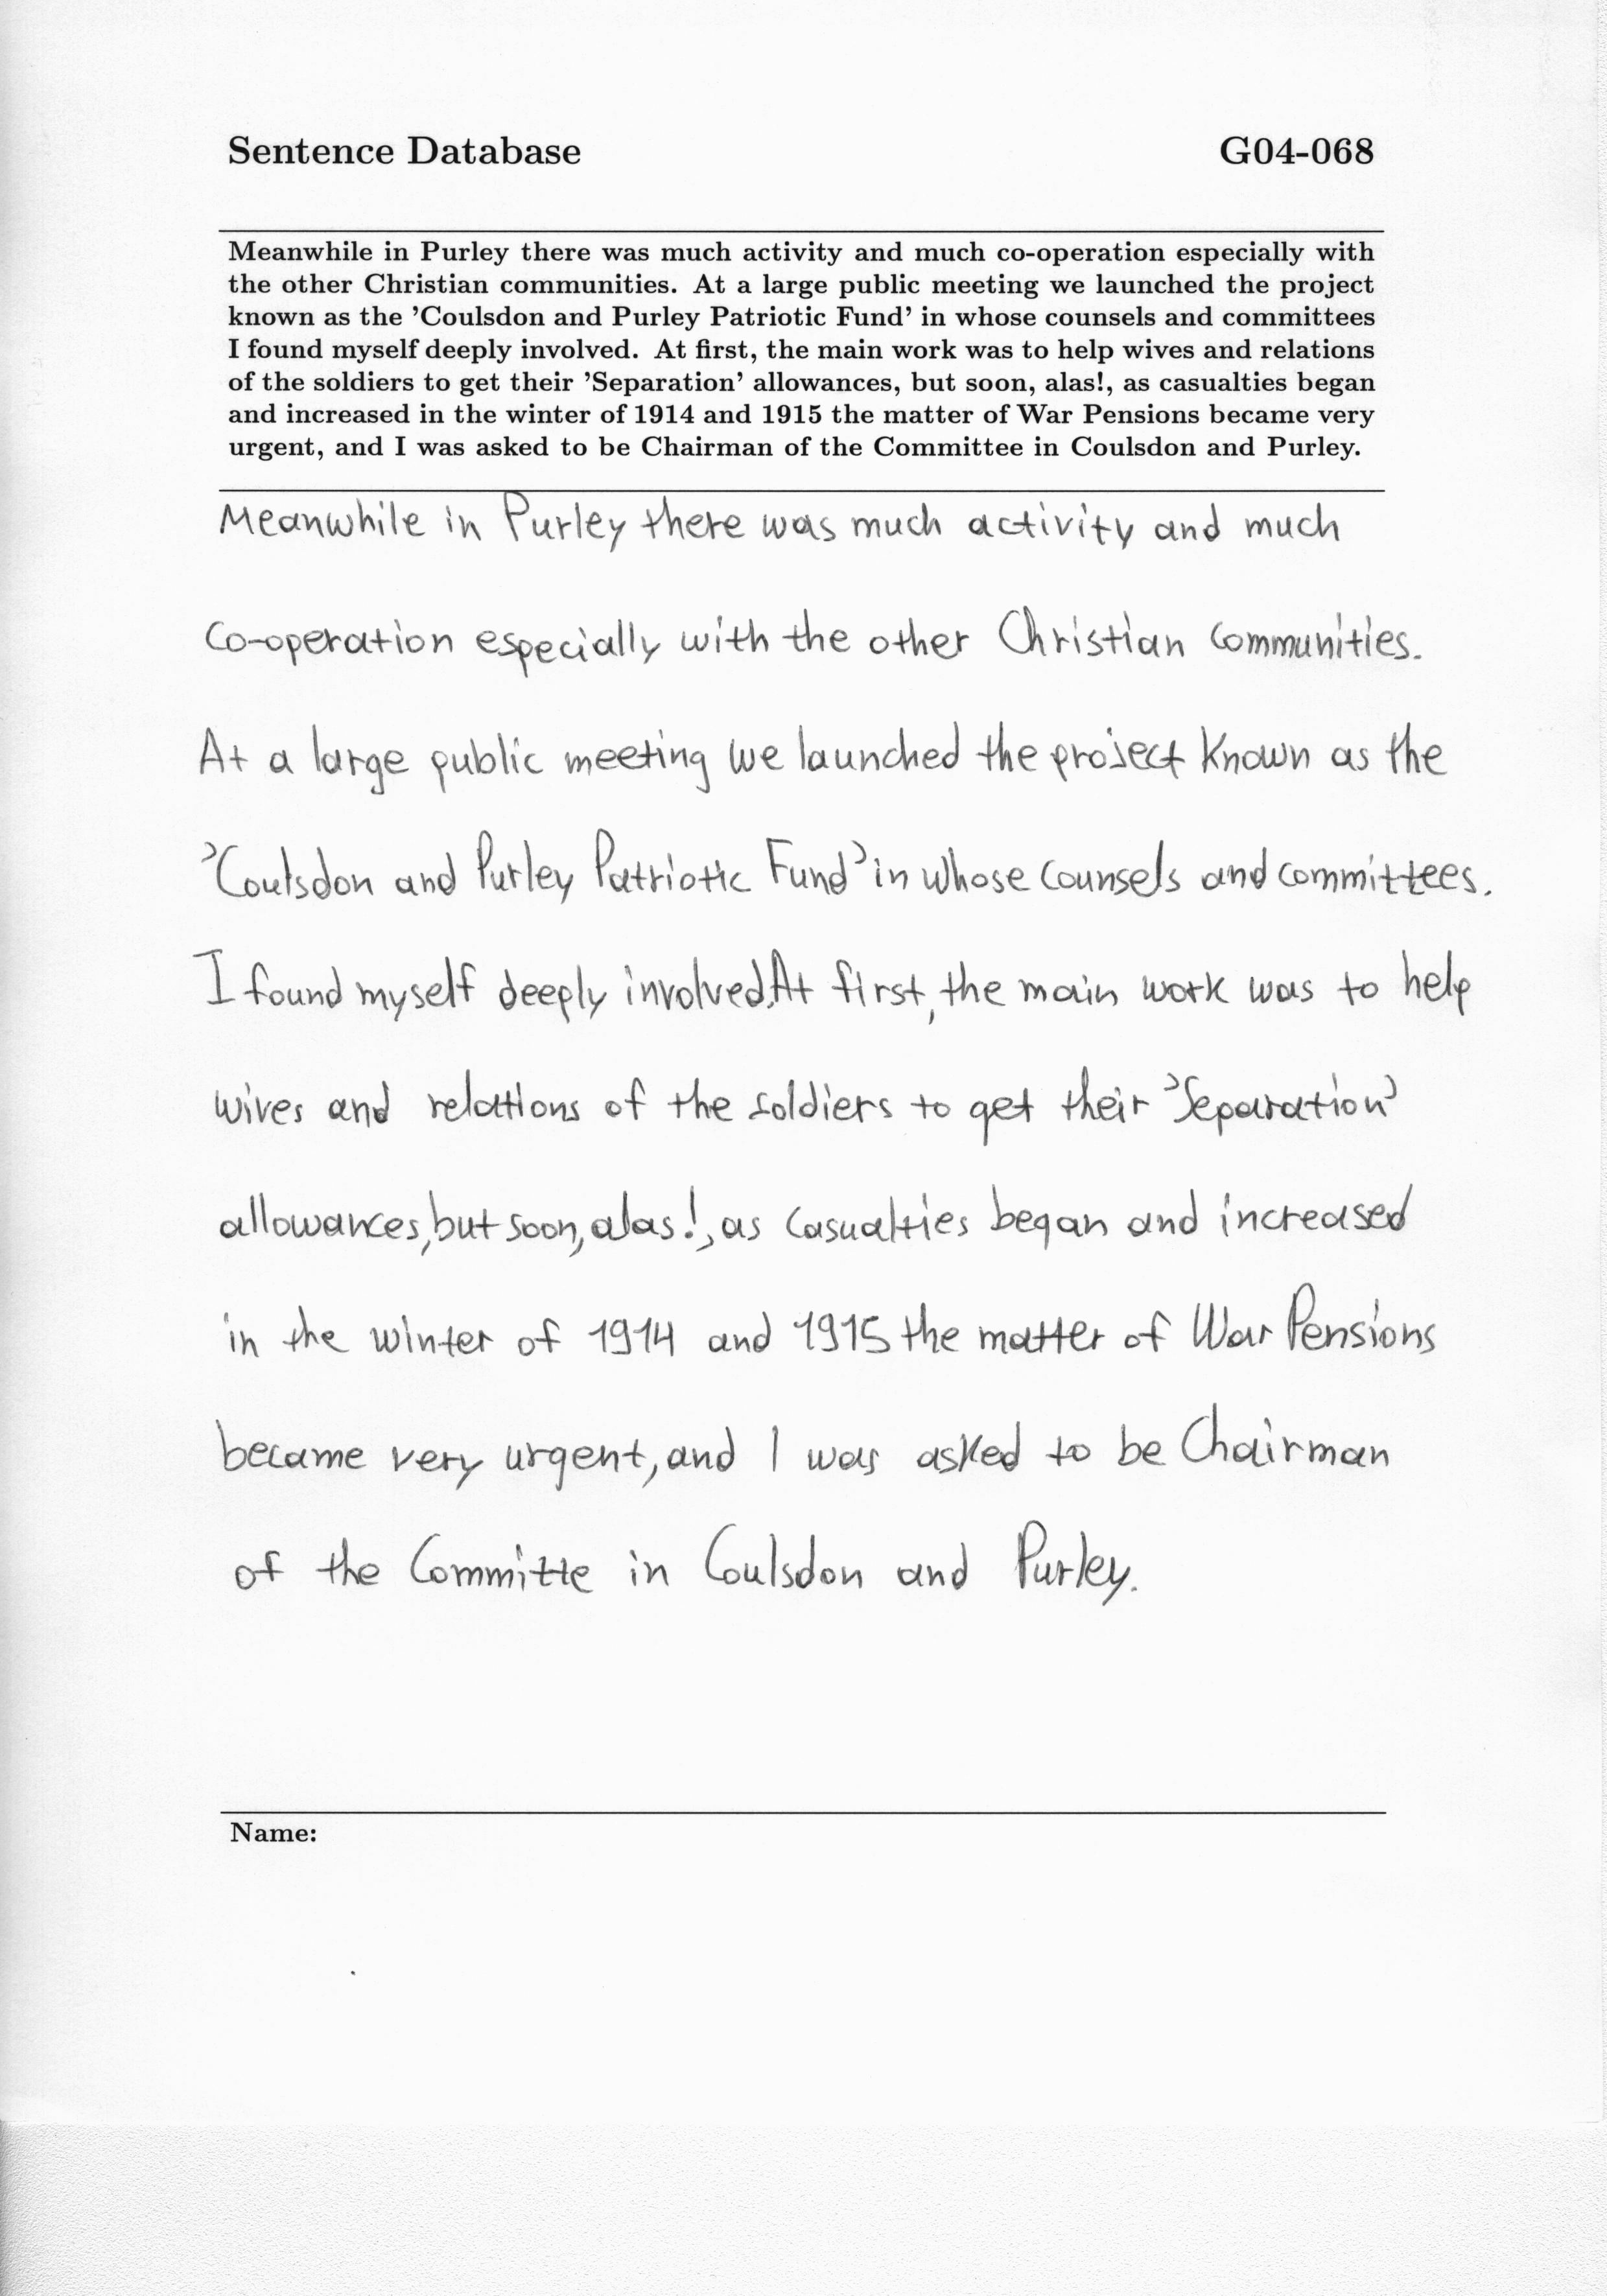 Sentence Database G04-068
Meanwhile in Purley there was much activity and much co-operation especially with
the other Christian communities. At a large public meeting we launched the project
known as the 'Coulsdon and Purley Patriotic Fund' in whose counsels and committees
I found myself deeply involved. At first, the main work was to help wives and relations
of the soldiers to get their 'Separation' allowances, but soon, alas!, as casualties began
and increased in the winter of 1914 and 1915 the matter of War Pensions became very
urgent, and I was asked to be Chairman of the Committee in Coulsdon and Purley.
Meanwhile in Purley there was much activity and much
co-operation especially with the other Christian communities.
At a large public meeting we launched the project known as the
'Coulsdon and Purley Patriotic Fund' in whose counsels and committees.
I found myself deeply involved. At first, the main work was to help
wives and relations of the soldiers to get their 'Separation'
allowances, but soon, alas!, as casualties began and increased
in the winter of 1914 and 1915 the matter of War Pensions
became very urgent, and I was asked to be Chairman
of the Committe in Coulsdon and Purley.
Name: